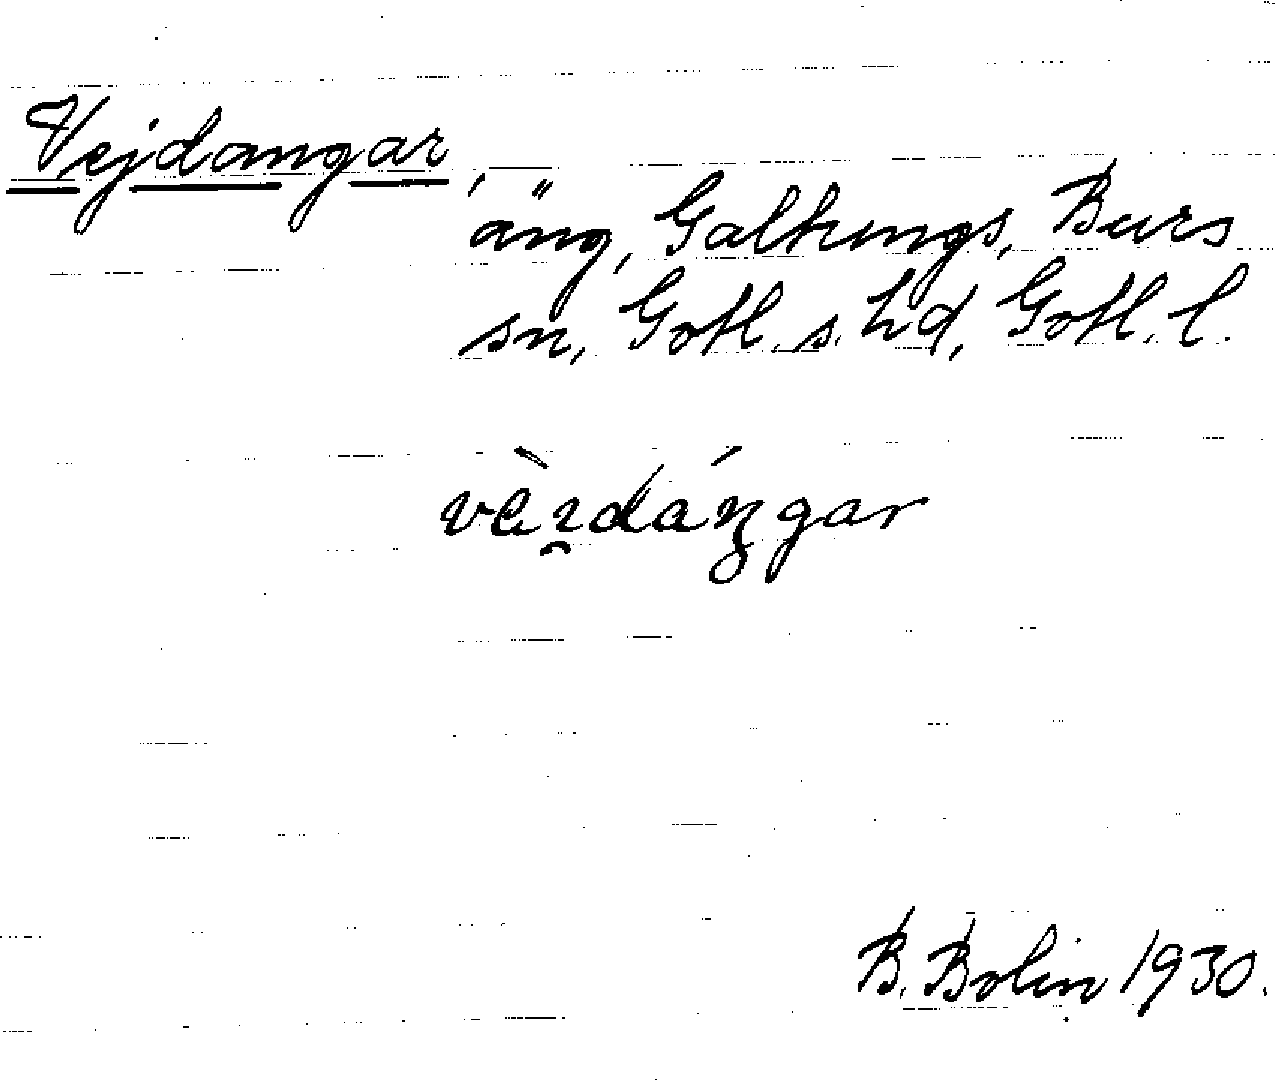 Vejdangar,
äng, Galtungs, Burs
sn, Gotl. s. hd, Gotl. l.
B. Bolin 1930.